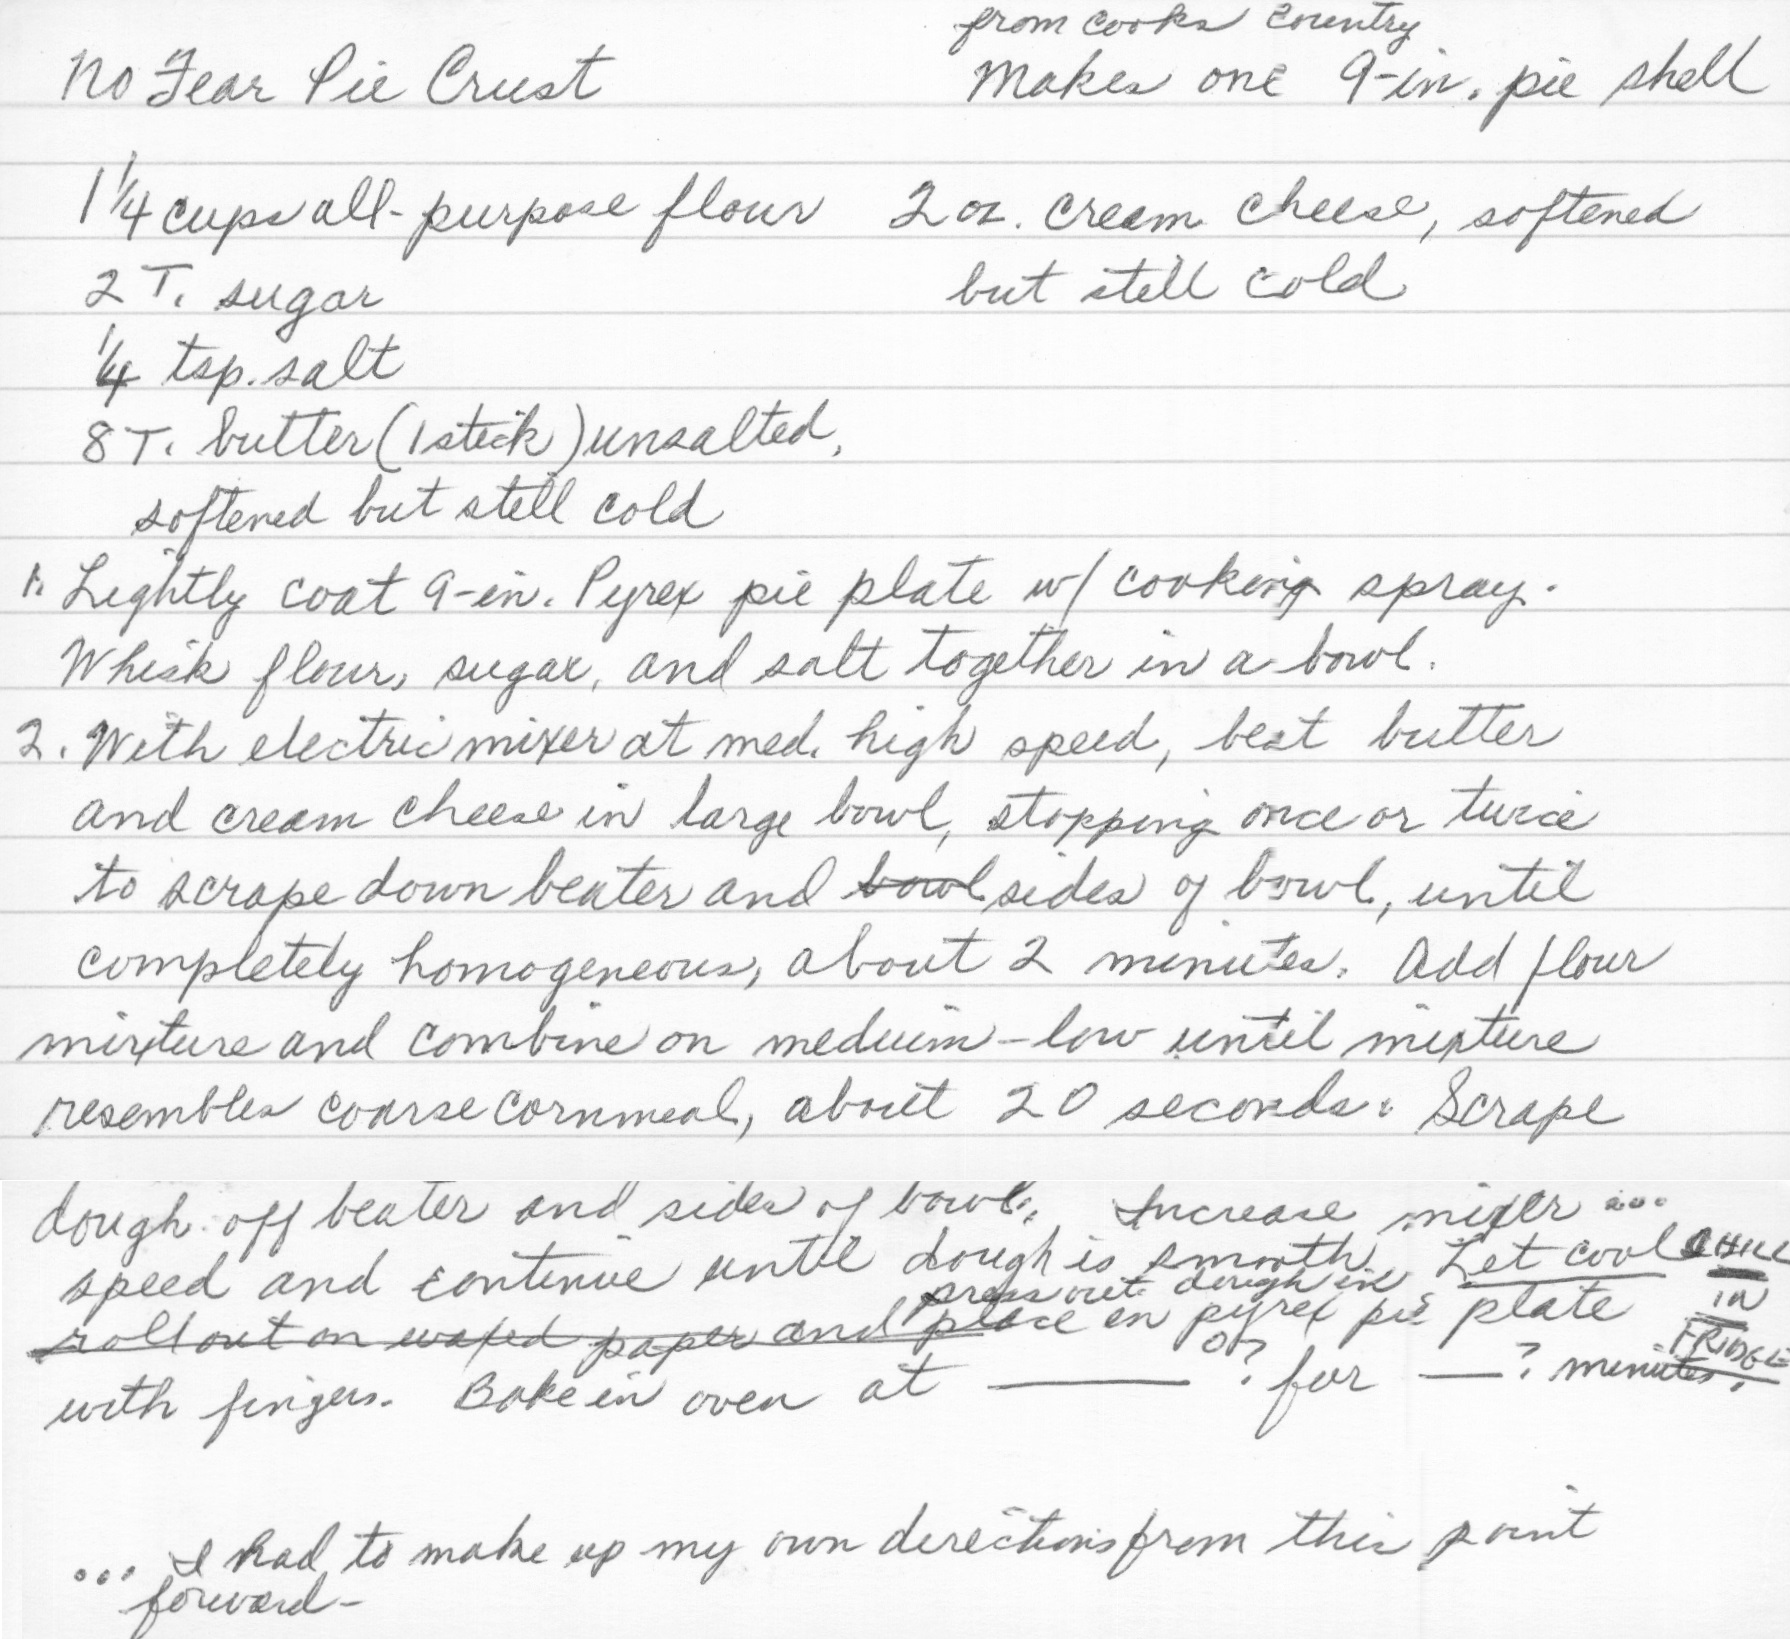 from Cooks Country
No Fear Pie Crust Makes one 9-in. pie shell
1 1/4 cups all-purpose flour 2 oz. cream cheese, softened
2 T. sugar but still cold
1/4 tsp. salt
8 T. butter (1 stick) unsalted,
softened but still cold
1. Lightly coat 9-in. Pyrex pie plate w/ cooking spray.
Whisk flour, sugar, and salt together in a bowl.
2. With electric mixer at med. high speed, beat butter
and cream cheese in large bowl, stopping once or twice
to scrape down beater and bowl sides of bowl, until
completely homogeneous, about 2 minutes. Add flour
mixture and combine on medium-low until mixture
resembles coarse cornmeal, about 20 seconds. Scrape
dough off beater and sides of bowl. Increase mixer ...
speed and continue until dough is smooth. Let cool CHILL
press out dough in IN
roll out on waxed paper and place in pyrex pie plate FRIDGE
with fingers. Bake in oven at ____°? for ___? minutes.
... I had to make up my own directions from this point
forward-